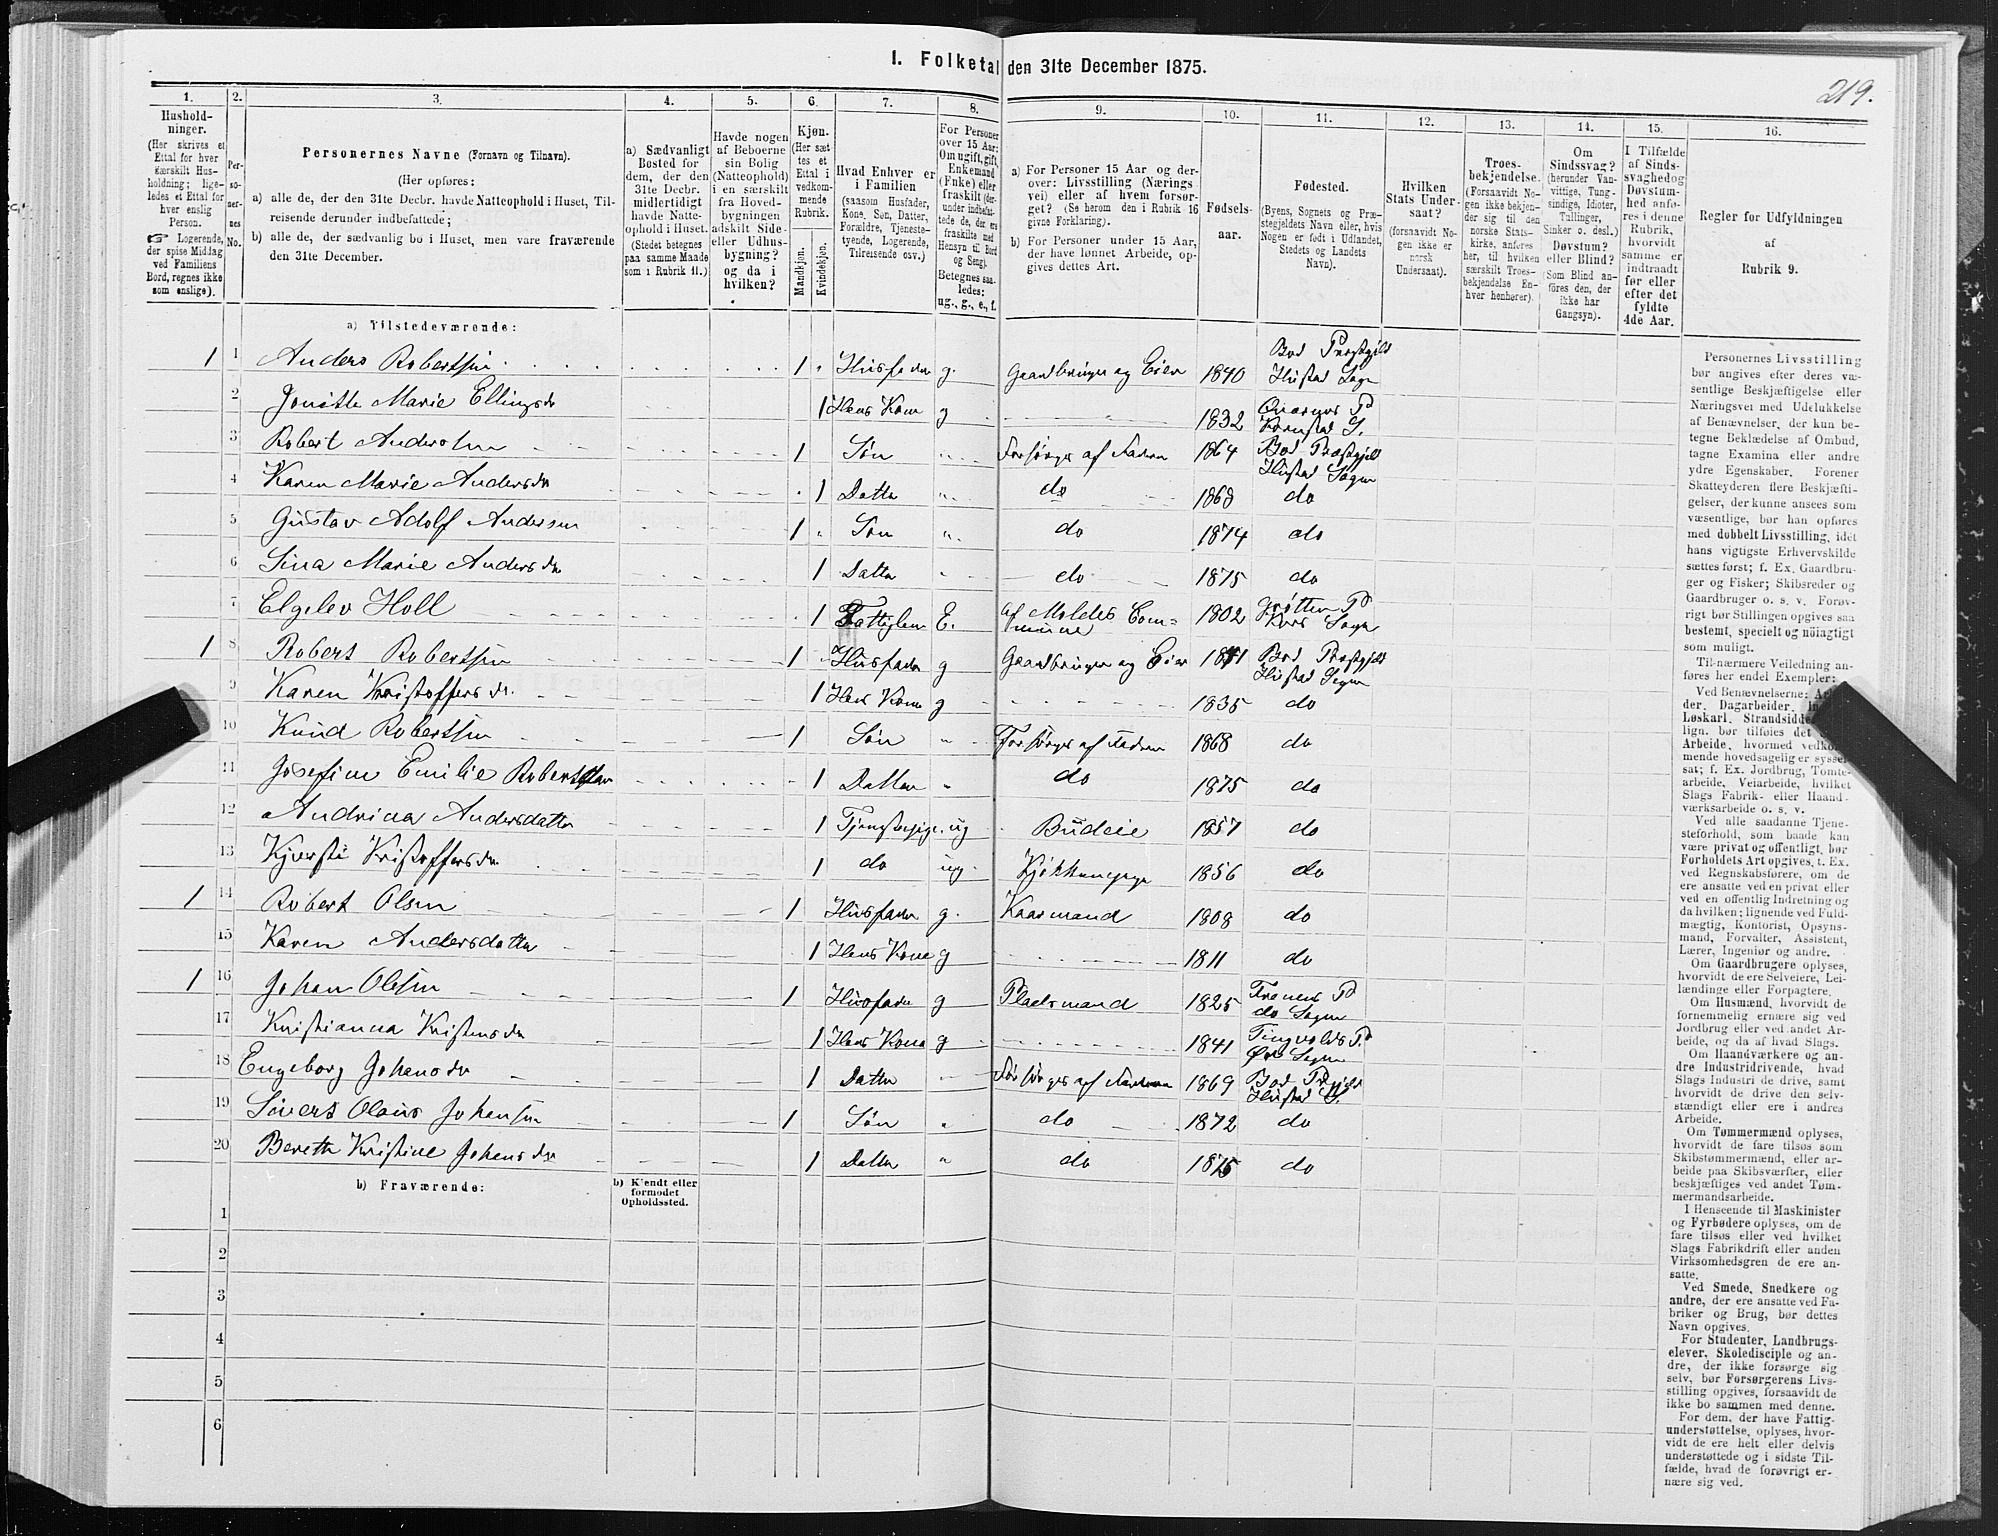 I. Folketal den 31te December 1875.
219.
1. 2. 3. 4. 5. 6. 7. 8. 9. 10. 11. 12. 13. 14. 15. 16.
Hushold-
ninger.
(Her skrives et
Ettal for hver
særskilt Hus-
holdning; lige-
ledes et Ettal for
hver enslig
Person.
☞ Logerende,
der spise Middag
ved Familiens
Bord, regnes ikke
som enslige).
Per-
so-
ner-
nes
No.
Personernes Navne (Fornavn og Tilnavn).
(Her opføres:
a) alle de, der den 31te Decbr. havde Natteophold i Huset, Til-
reisende derunder indbefattede;
b) alle de, der sædvanlig bo i Huset, men vare fraværende
den 31te December.
a) Sædvanligt
Bosted for
dem, der den
31te Decbr.
midlertidigt
havde Natte-
ophold i Huset.
(Stedet betegnes
paa samme Maade
som i Rubrik 11.)
Havde nogen
af Beboerne
sin Bolig
(Natteophold)
i en særskilt
fra Hoved-
bygningen
adskilt Side-
eller Udhus-
bygning?
og da i
hvilken?
Kjøn.
(Her sæt
tes et
Ettal i
vedkom-
mende
Rubrik.
Mandkjøn.
Kvindekjøn.
Hvad Enhver er
i Familien
(saasom Husfader,
Kone, Søn, Datter,
Forældre, Tjeneste-
tyende, Logerende,
Tilreisende osv.)
For Personer
over 15 Aar:
Om ugift, gift,
Enkemand
(Enke) eller
fraskilt (der-
under indbefat-
tede de, der ere
fraskilte med
Hensyn til Bord
og Seng).
Betegnes saa-
ledes:
ug., g., e., f.
a) For Personer 15 Aar og der-
over: Livsstilling (Nærings
vei) eller af hvem forsør-
get? (Se herom den i Rubrik 16
givne Forklaring).
b) For Personer under 15 Aar,
der have lønnet Arbeide, op-
gives dettes Art.
Fødsels-
aar.
Fødested.
(Byens, Sognets og Præ-
stegjeldets Navn eller, hvis
Nogen er født i Udlandet,
Stedets og Landets
Navn).
Hvilken
Stats Under-
saat?
(forsaavidt No-
gen ikke er
norsk
Undersaat).
Troes-
bekjendelse.
(Forsaavidt No-
gen ikke bekjen-
der sig til den
norske Stats-
kirke, anføres
her, til hvilken
særskilt Troes-
bekjendelse En-
hver henhører).
Om
Sindssvag?
(herunder Van-
vittige, Tung-
sindige, Idioter,
Tullinger,
Sinker o. desl.)
Døvstum?
eller Blind?
(Som Blind an-
føres den, der
ikke har
Gangsyn).
I Tilfælde
af Sinds-
svaghed og
Døvstum-
hed anfø-
res i denne
Rubrik,
hvorvidt
samme er
indtraadt
før eller
efter det
fyldte
4de Aar.
Regler for Udfyldningen
af
Rubrik 9.
a) Tilstedeværende:
1 1 Anders Robertsen 1 Husfader g. Gaardbruger og Eier 1840 Bod Præstgjeld Hustad Sogn
2 Jonette Marie Ellingsdr 1 Hans Kone g 1832 Kornstad S.
3 Robert Andersen 1 Søn Forsørges af Faderen 1864 Bod Præstgjeld Hustad Sogn
4 Karen Marie Andersdr 1 Datter do 1868 do
5 Gustav Adolf Andersen 1 Søn do 1874 do
6 Sina Marie Andersdr 1 Datter do 1875 do
7 Holl 1 Fattiglem E. af Moldes Com=mune 1802 Grøtten Pd Kors Sogn
1 8 Robert Robertsen 1 Husfader g Gaardbruger og Eier 1841 Bod Præstgjeld Hustad Sogn
9 Karen Kristoffersdr. 1 Hans Kone g 1835 do
10 Knud Robertsen 1 Søn Forsørges af Faderen 1868 do
11 Josefine Emilie Robertsdatter 1 Datter do 1875 do
12 Andrina Andersdatter 1 Tjenstepige ug Budeie 1857 do
13 Kjersti Kristoffersdr. 1 do ug. Kjøkkenpige 1856 do
1 14 Robert Olsen 1 Husfader g. Kaarmand 1808 do
15 Karen Andersdatter 1 Hans Kone g 1811 do
1 16 Johan Olsen 1 Husfader g Pladsmand 1825 Frænens Pd do Sogn
17 Kristianna Kristensdr 1 Hans Kone g 1841 Tingvolds Pd Øre Sogn
18 Engeborg Johansdr 1 Datter Forsørges af Faderen 1869 Bod Pgjeld Hustad S.
19 Sivert Olaus Johansen 1 Søn do 1872 do
20 Bereth Kristine Johansdr 1 Datter do 1875 do
b) Fraværende:
b) Kendt eller
formodet
Opholdssted.
1
2
3
4
5
6
Personernes Livsstilling
bør angives efter deres væ-
sentlige Beskjæftigelse eller
Næringsvei med Udelukkelse
af Benævnelser, der kun be-
tegne Beklædelse af Ombud,
tagne Examina eller andre
ydre Egenskaber. Forener
Skatteyderen flere Beskjæfti-
gelser, der kunne ansees som
væsentlige, bør han opføres
med dobbelt Livsstilling, idet
hans vigtigste Erhvervskilde
sættes først; f. Ex. Gaardbru-
ger og Fisker; Skibsreder og
Gaardbruger o. s. v. Forøv-
rigt bør Stillingen opgives saa
bestemt, specielt og nøiagtigt
som muligt.
Til nærmere Veiledning an-
føres her endel Exempler:
Ved Benævnelserne:
der, Dagarbeider,
Løskarl, Strandsidde
lign. bør tilføies det
Arbeide, hvormed vedkom-
mende hovedsagelig er syssel-
sat; f. Ex. Jordbrug, Tomte-
arbeide, Veiarbeide, hvilket
Slags Fabrik- eller Haand-
værksarbeide o. s. v.
Ved alle saadanne Tjene-
steforhold, som baade kan
være privat og offentligt, bør
Forholdets Art opgives, f. Ex.
ved Regnskabsførere, om de
ere ansatte ved en privat eller
ved en offentlig Indretning og
da hvilken; lignende ved Fuld-
mægtig, Kontorist, Opsyns-
mand, Forvalter, Assistent,
Lærer, Ingeniør og andre.
Om Gaardbrugere oplyses,
hvorvidt de ere Selveiere, Lei-
lændinge eller Forpagtere.
Om Husmænd, hvorvidt de
fornemmelig ernære sig ved
Jordbrug eller ved andet Ar-
beide, og da af hvad Slags.
Om Haandværkere og an-
dre Industridrivende, hvad
Slags Industri de drive, samt
hvorvidt de drive den selv-
stændigt eller ere i andres
Arbeide.
Om Tømmermænd oplyses,
hvorvidt de fare tilsøs som
Skibstømmermænd, eller ar-
beide paa Skibsværfter, eller
beskjæftiges ved andet Tøm-
mermandsarbeide.
I Henseende til Maskinister
og Fyrbødere oplyses, om de
fare tilsøs eller ved hvilket
Slags Fabrikdrift eller anden
Virksomhedsgren de ere an-
satte.
Ved Smede, Snedkere og
andre, der ere ansatte ved Fa-
briker og Brug, bør dettes
Navn opgives.
For Studenter, Landbrugs-
elever, Skoledisciple og an-
dre, der ikke forsørge sig
selv, bør Forsørgerens Livs-
stilling opgives, forsaavidt de
ikke bo sammen med denne.
For dem, der have Fattig-
understøttelse, oplyses, hvor-
vidt de ere helt eller delvis
understøttede og i sidste Til-
fælde, hvad de forøvrigt er-
nære sig ved.